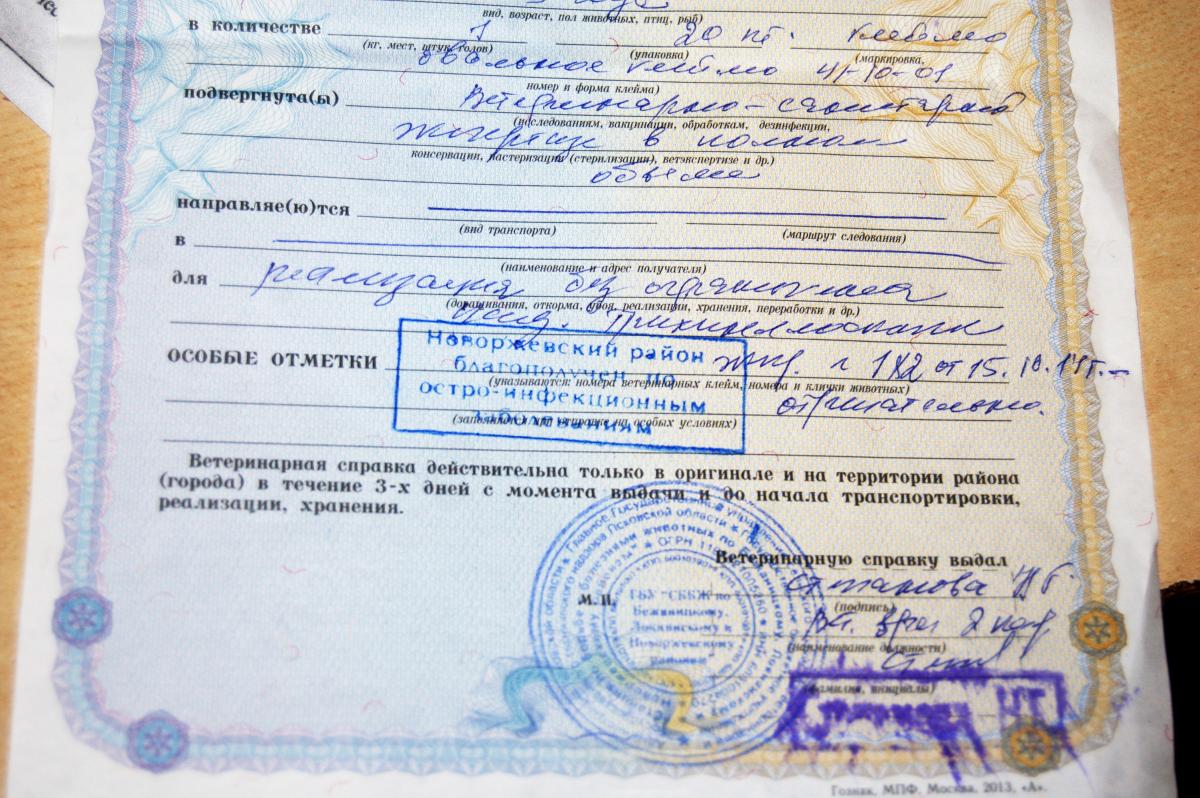 вид, возраст, пол животных, птиц, рыб)
в количестве 1 20 кг. клеймо
(кг, мест, штук, голов) (упаковка) (маркировка,
овальное клеймо 41-10-01
номер и форма клейма)
подвергнута(ы) Ветеринарно-санитарной
(исследованиям, вакцинации, обработкам, дезинфекции,
экспертизе в полном
консервации, пастеризации (стерилизации), ветэкспертизе и др.)
объеме
направляе(ю)тся
(вид транспорта) (маршрут следования)
в
(наименование и адрес получателя)
для реализация без ограничения
(доращивания, откорма, убоя, реализации, хранения, переработки и др.)
ОСОБЫЕ ОТМЕТКИ экс. 142 от 15.10.14г.
(указываются: номера ветеринарных клейм, номера и клички животных)
отрицательно.
(заполняется при отправке на особых условиях)
Новоржевский район
благополучен по
остро-инфекционным
заболеваниям
Ветеринарная справка действительна только в оригинале и на территории района
(города) в течение 3-х дней с момента выдачи и до начала транспортировки,
реализации, хранения.
Ветеринарную справку выдал
(подпись)
Вет. врач 2 кат
(наименование должности)
(фамилия, инициалы)
М.П.
ГБУ "СББЖ по
Бежаницкому,
Локнянскому и
Новоржевскому
районам"
Гознак, МПФ, Москва, 2013, «А».